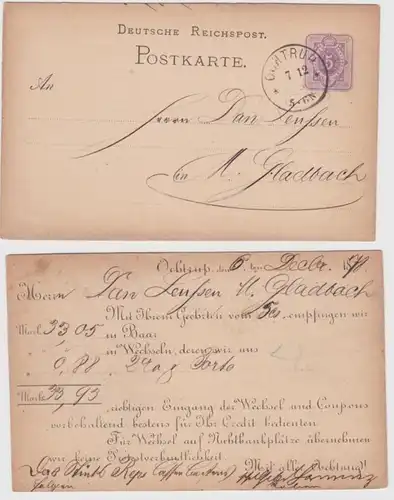 DEUTSCHE REICHSPOST.
POSTKARTE.
OCHTRUP
7 12
5-6N
5
An
Herrn Dan Leußen
in M. Gladbach
Ochtrup, den 6. ten Decbr. 18
Herrn Dan Leußen M. Gladbach
Mit Ihrem Geehrten vom 5es, empfingen wir
Mark 33,05 in Baar
in Wechseln, deren wir uns
0,88
Porto
Mark 33,93
richtigen Eingang der Wechsel und Coupons
vorbehaltend bestens für Ihr Credit bedienten.
Für Wechsel auf Nichtbankplätze übernehmen
wir keine Protestverbindlichkeit.
Mit aller Achtung!
Das
folgen